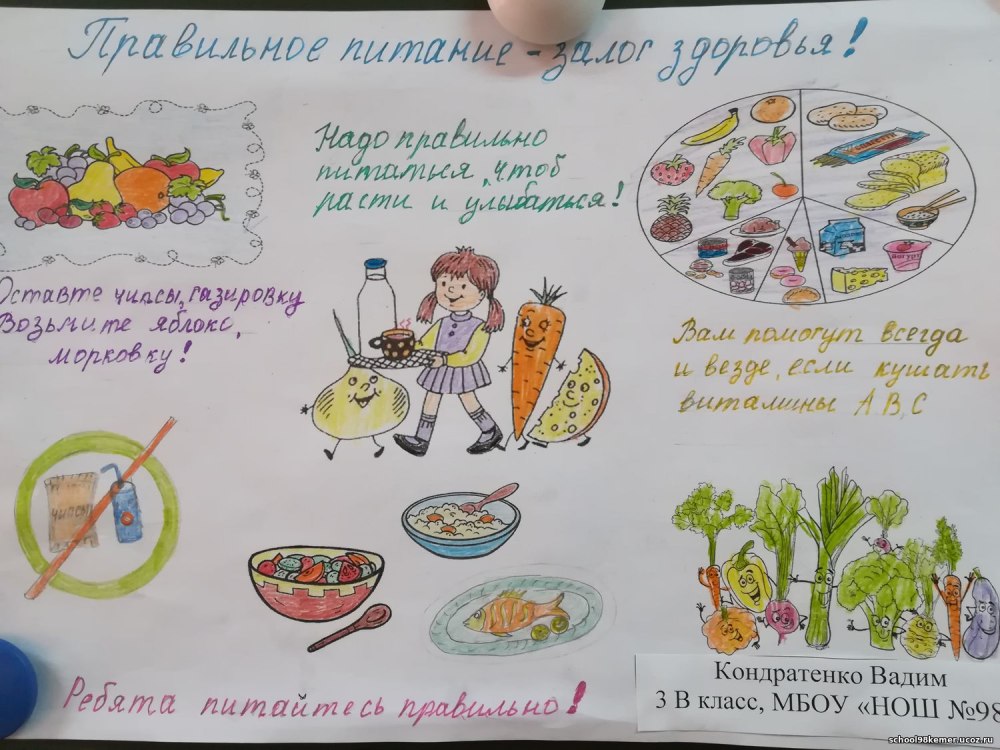 Правильное питание - залог здоровья!
Надо правильно
питаться, чтоб
расти и улыбаться!
Оставте чипсы, газировку
Возьмите яблоко,
морковку!
йогурт
Вам помогут всегда
и везде, если кушать
витамины А, В, С
чипсы
Ребята питайтесь правильно!
Кондратенко Вадим
3 В класс, МБОУ «НОШ №98
school98kemer.ucoz.ru